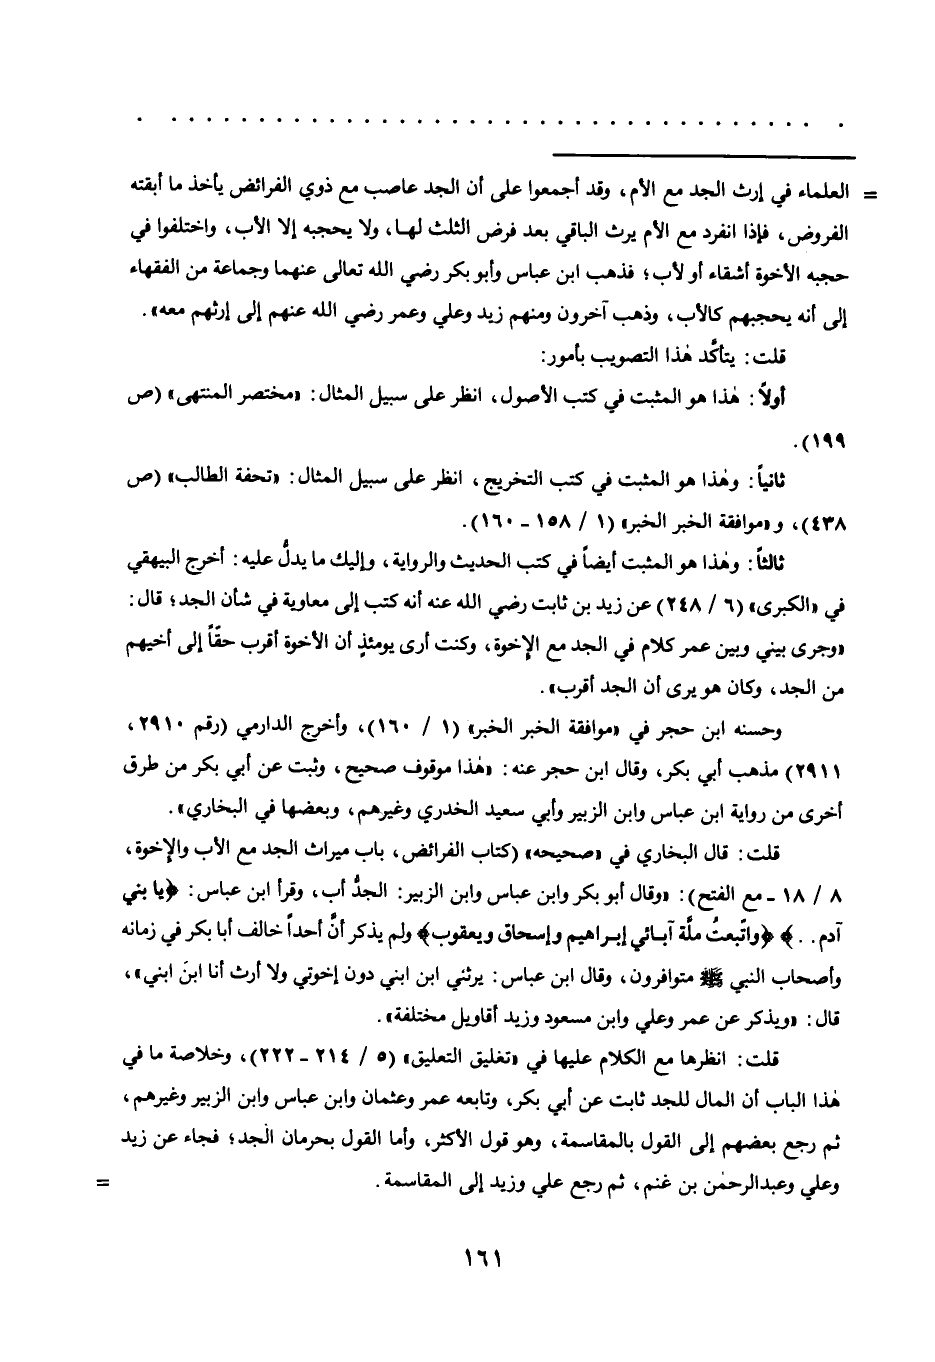 . . . . . . . . . . . . . . . . . . . . . . . . . . . . . . . . . . . . . . .
= العلماء في إرث الجد مع الأم، وقد أجمعوا على أن الجد عاصب مع ذوي الفرائض يأخذ ما أبقته
الفروض، فإذا انفرد مع الأم يرث الباقي بعد فرض الثلث لها، ولا يحجبه إلا الأب، واختلفوا في
حجبه الأخوة أشقاء أو لأب؛ فذهب ابن عباس وأبو بكر رضي الله تعالى عنهما وجماعة من الفقهاء
إلى أنه يحجبهم كالأب، وذهب آخرون ومنهم زيد وعلي وعمر رضي الله عنهم إلى إرثهم معه».
قلت: يتأكَّد هٰذا التصويب بأمور:
أولاً: هٰذا هو المثبت في كتب الأصول، انظر على سبيل المثال: «مختصر المنتهى» (ص
١٩٩).
ثانياً: وهٰذا هو المثبت في كتب التخريج، انظر على سبيل المثال: «تحفة الطالب» (ص
٤٣٨)، و «موافقة الخبر الخبر» (١ / ١٥٨ ـ ١٦٠).
ثالثاً: وهٰذا هو المثبت أيضاً في كتب الحديث والرواية، وإليك ما يدلُّ عليه: أخرج البيهقي
في «الكبرى» (٦ / ٢٤٨) عن زيد بن ثابت رضي الله عنه أنه كتب إلى معاوية في شأن الجد؛ قال:
«وجرى بيني وبين عمر كلام في الجد مع الإخوة، وكنت أرى يومئذٍ أن الأخوة أقرب حقّاً إلى أخيهم
من الجد، وكان هو يرى أن الجد أقرب».
وحسنه ابن حجر في «موافقة الخبر الخبر» (١ / ١٦٠)، وأخرج الدارمي (رقم ٢٩١٠،
٢٩١١) مذهب أبي بكر، وقال ابن حجر عنه: «هٰذا موقوف صحيح، وثبت عن أبي بكر من طرق
أخرى من رواية ابن عباس وابن الزبير وأبي سعيد الخدري وغيرهم، وبعضها في البخاري».
قلت: قال البخاري في «صحيحه» (كتاب الفرائض، باب ميراث الجد مع الأب والإخوة،
٨ / ١٨ ـ مع الفتح): «وقال أبو بكر وابن عباس وابن الزبير: الجدُّ أب، وقرأ ابن عباس: ﴿يا بني
آدم. . ﴾ ﴿واتَّبعتُ ملَّة آبائي إبراهيم وإسحاق ويعقوب﴾ ولم يذكر أنَّ أحداً خالف أبا بكر في زمانه
وأصحاب النبي ﷺ متوافرون، وقال ابن عباس: يرثني ابن ابني دون إخوتي ولا أرث أنا ابنَ ابني»،
قال: «ويذكر عن عمر وعلي وابن مسعود وزيد أقاويل مختلفة».
قلت: انظرها مع الكلام عليها في «تغليق التعليق» (٥ / ٢١٤ ـ ٢٢٢)، وخلاصة ما في
هٰذا الباب أن المال للجد ثابت عن أبي بكر، وتابعه عمر وعثمان وابن عباس وابن الزبير وغيرهم،
ثم رجع بعضهم إلى القول بالمقاسمة، وهو قول الأكثر، وأما القول بحرمان الجد؛ فجاء عن زيد
وعلي وعبدالرحمٰن بن غنم، ثم رجع علي وزيد إلى المقاسمة. =
١٦١